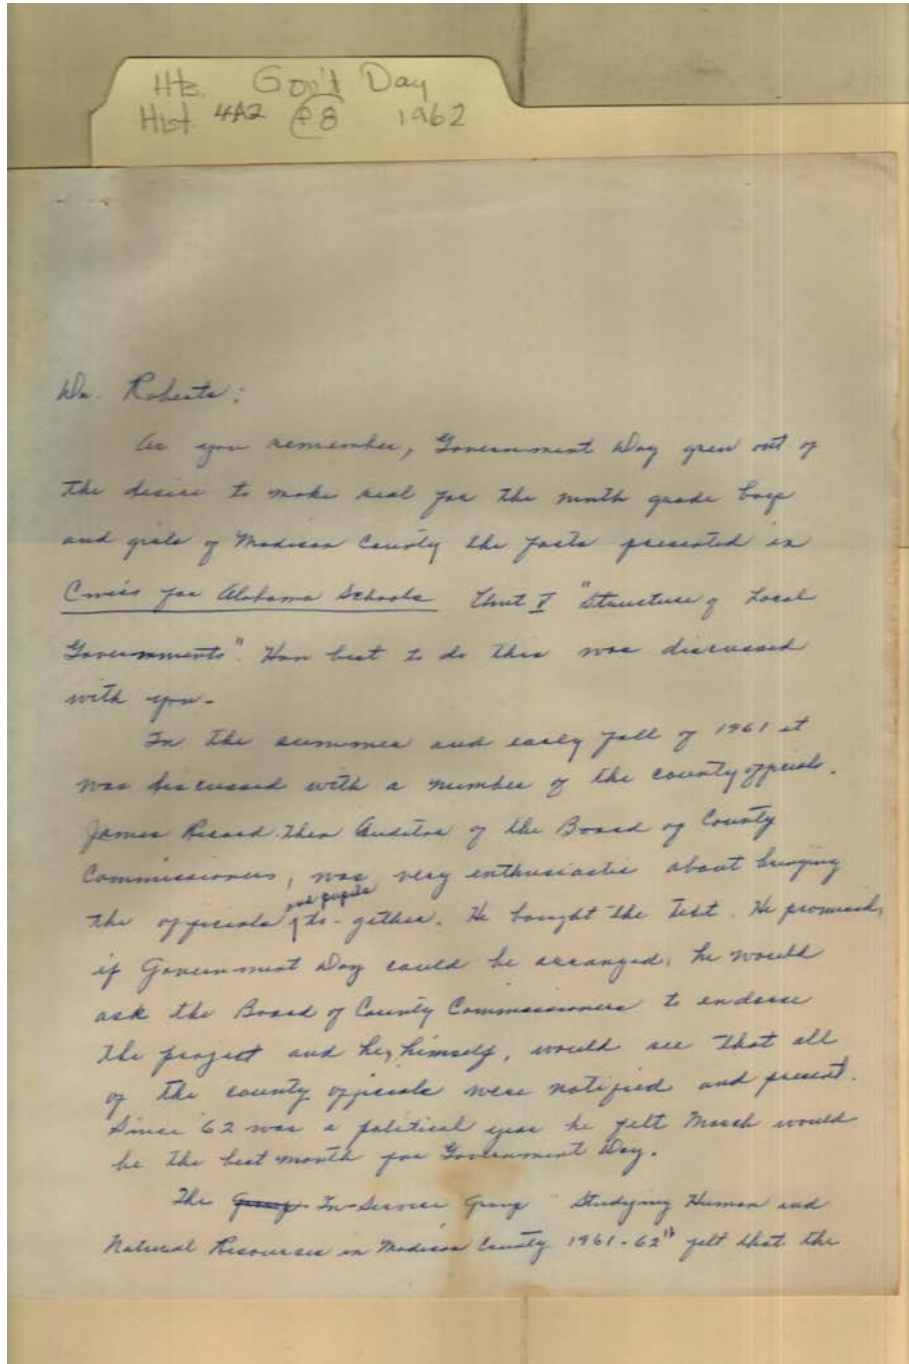 Hts. Gov't Day
Hist 4A2 P8 1962
Dr. Roberts:
As you remember, Government Day grew out of
the desire to make real for the ninth grade boys
and girls of Madison County the facts presented in
Civics for Alabama Schools Unit V "Structure of Local
Governments". How best to do this was discussed
with you-
In the summer and early fall of 1961 it
was discussed with a number of the county officials.
James Record then Auditor of the Board of County
Commissioners, was very enthusiastic about bringing
the officials and pupils to-gether. He bought the Text. He promised,
if Government Day could be arranged, he would
ask the Board of County Commissioners to endorse
the project and he, himself, would see that all
of the county officials were notified and present.
Since '62 was a political year he felt March would
be the best month for Government Day.
The Group In-Service Group "Studying Human and
Natural Resources in Madison County 1961-62" felt that the